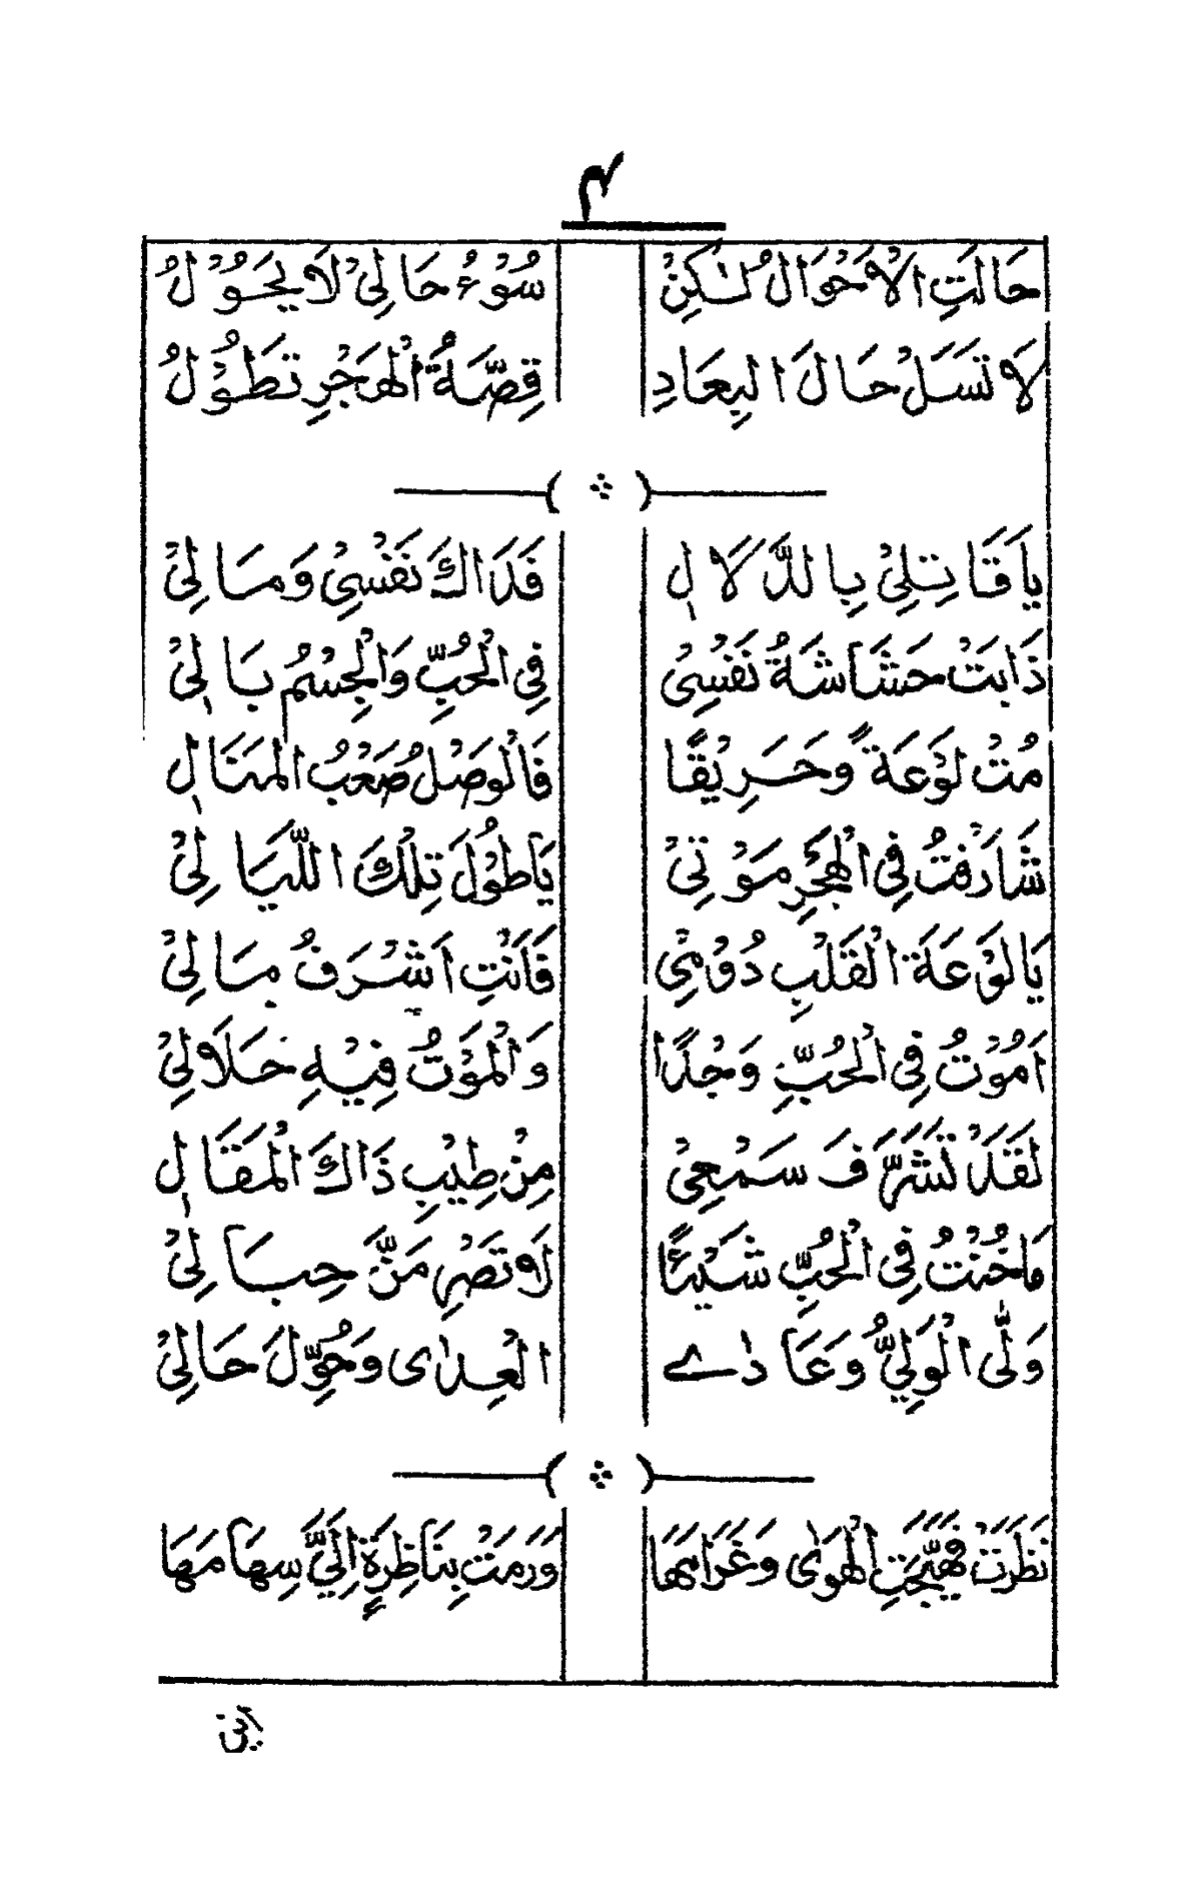 ۴
حَالَتِ الْاَحْوَالُ لٰكِنْ سُوْءُ حَالِيْ لَا يَحُوْلُ
لَا تَسَلْ حَالَ الْبِعَادِ قِصَّةُ الْهَجْرِ تَطُوْلُ
يَا قَاتِلِيْ بِالدَّلَالِ فَدَاكَ نَفْسِيْ وَمَالِيْ
ذَابَتْ حَشَاشَةُ نَفْسِيْ فِي الْحُبِّ وَالْجِسْمُ بَالِيْ
مُتْ لَوْعَةً وَحَرِيْقًا فَالْوَصْلُ صَعْبُ الْمَنَالِ
شَارَفْتُ فِي الْهَجْرِ مَوْتِيْ يَا طُوْلَ تِلْكَ اللَّيَالِيْ
يَا لَوْعَةَ الْقَلْبِ دُوْمِيْ فَاَنْتِ اَشْرَفُ مَالِيْ
اَمُوْتُ فِي الْحُبِّ وَجْدًا وَالْمَوْتُ فِيْهِ حَلَا لِيْ
لَقَدْ تَشَرَّفَ سَمْعِيْ مِنْ طِيْبِ ذَاكَ الْمَقَالِ
مَا خُنْتُ فِي الْحُبِّ شَيْئًا لَا وَتَصْرِمَنَّ حِبَالِيْ
وَلَّى الْوَلِيُّ وَعَادٰے الْعِدٰى وَحُوِّلَ حَالِيْ
نَظَرَتْ فَهَيَّجَتِ الْهَوٰى وَغَرَامَهَا وَرَمَتْ بِنَاظِرَةٍ اِلَيَّ سِهَامَهَا